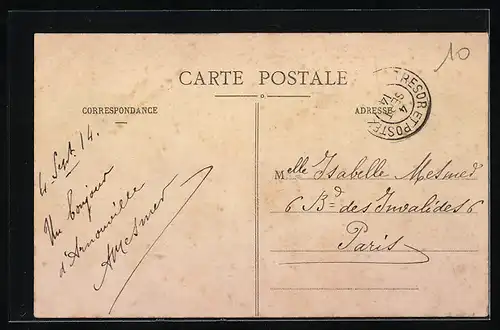 10
CARTE POSTALE
CORRESPONDANCE
ADRESSE
TRESOR ET POSTES
4
SEPT
14
4 Sept. 14.
Un bonjour
d'Arnouville
AMesmer
Melle Isabelle Mesmer
6 Bd des Invalides 6
Paris